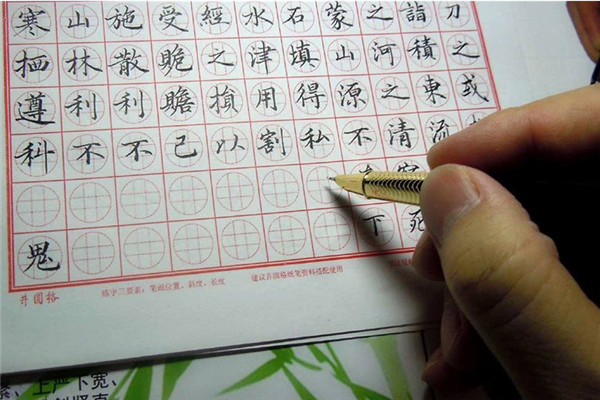 寒山施受經水石蒙之詣刀
栖林散之津填山河積之
遵利利贍用得源之東或
科不不己以割私不清流
鬼下死
井圆格 练字三要素：笔画位置、斜度、长度 建议井圆格纸笔资料搭配使用
上严下宽、